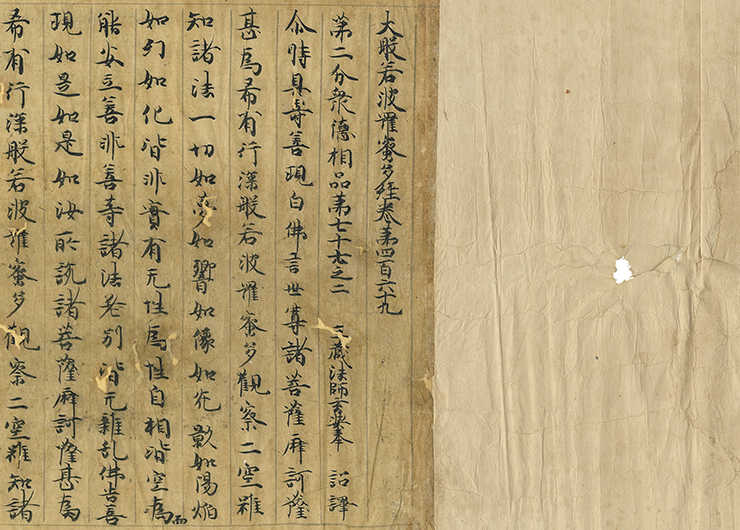 大般若波羅蜜多經卷第四百六十九
第二分衆德相品第七十七之二 三藏法師玄奘奉 詔譯
尒時具壽善現白佛言世尊諸菩薩摩訶薩
甚為希有行深般若波羅蜜多觀察二空雖
知諸法一切如夢如響如像如光影如陽焰
如幻如化皆非實有无性為性自相皆空為而
能安立善非善等諸法差別皆无雜亂佛告善
現如是如是如汝所說諸菩薩摩訶薩甚為
希有行深般若波羅蜜多觀察二空雖知諸